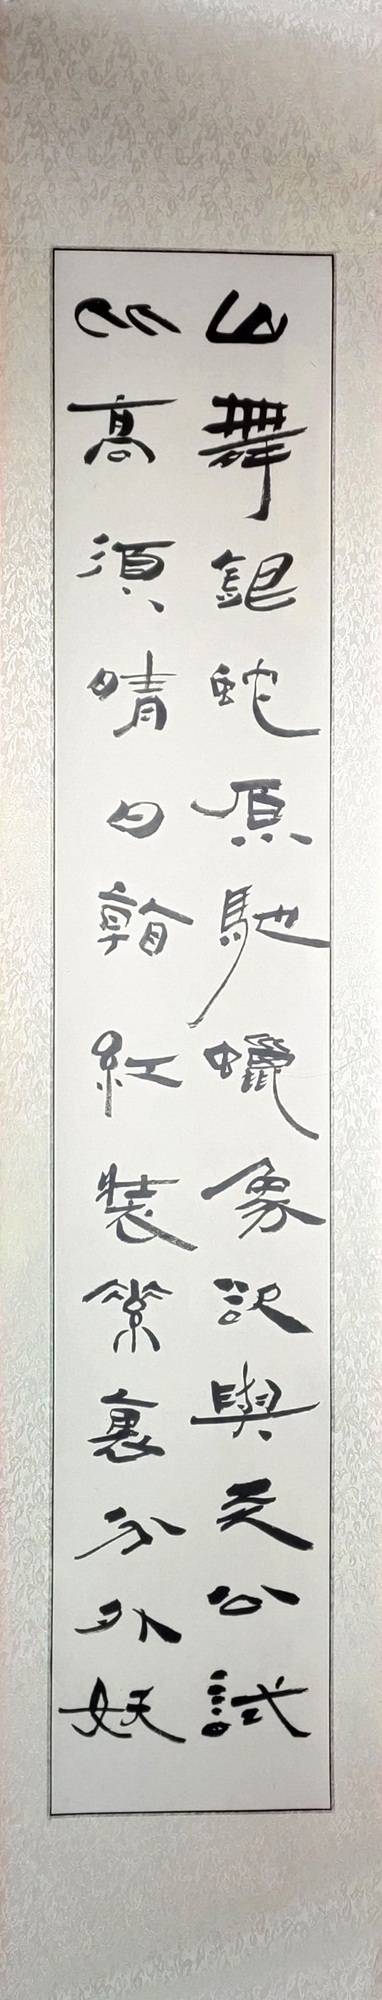 山舞銀蛇原馳蠟象欲與天公試
比高須晴日看紅裝素裹分外妖